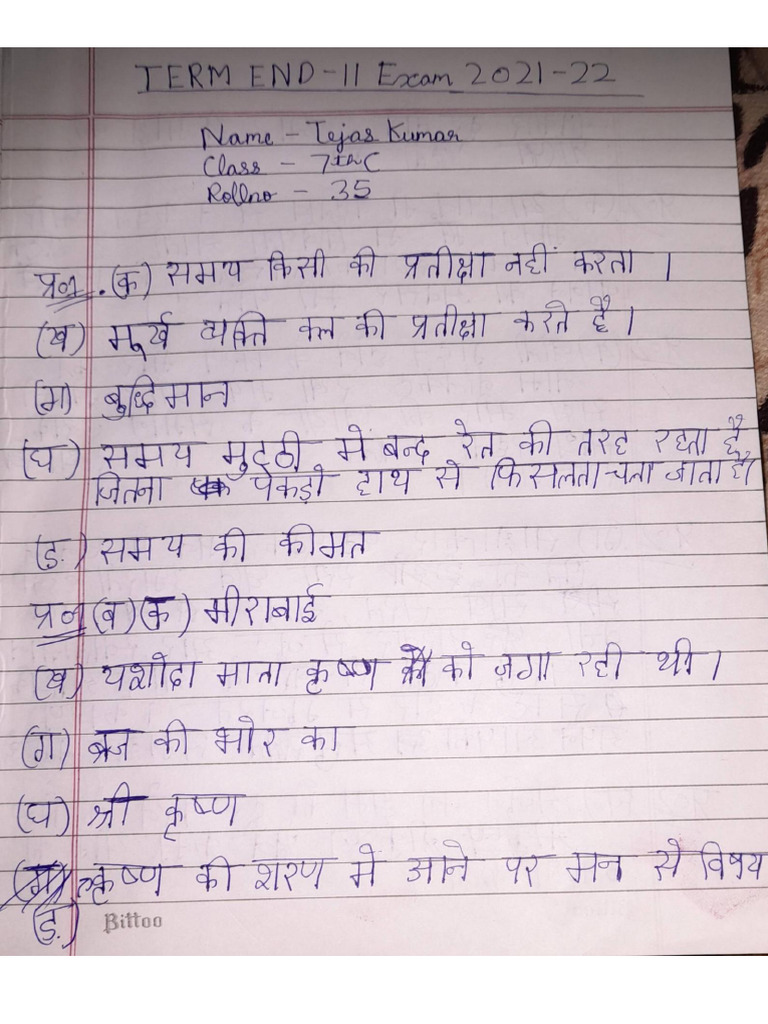 TERM END-II Exam 2021-22
Name - Tejas Kumar
Class - 7th C
Rollno - 35
प्रन1. (क) समय किसी की प्रतीक्षा नहीं करता ।
(ख) मूर्ख व्यक्ति कल की प्रतीक्षा करते है ।
(ग) बुद्धिमान
(घ) समय मुट्ठी मे बन्द रेत की तरह रहता है
जितना पकड़ो हाथ से फिसलता चला जाता है।
(ड.) समय की कीमत
प्रन (ब) (क) मीराबाई
(ख) यशोदा माता कृष्ण को जगा रही थी ।
(ग) ब्रज की भोर का
(घ) श्री कृष्ण
कृष्ण की शरण मे आने पर मन से विषय
(ड.) Bittoo